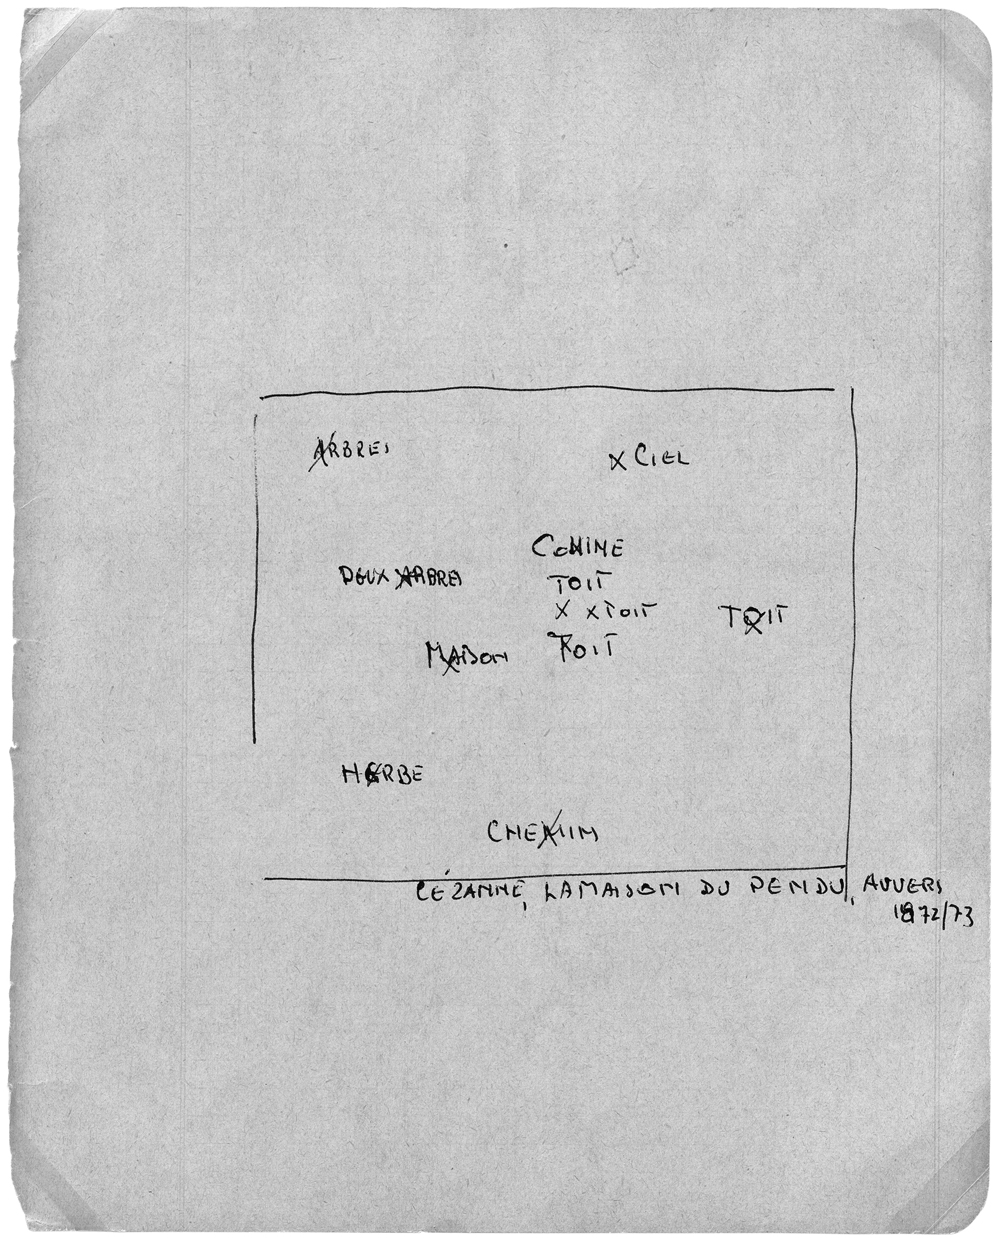 ARBRES
X CIEL
COLLINE
DEUX ARBRES
TOIT
X X TOIT
TOIT
MAISON
TOIT
HERBE
CHEMIN
CÉZANNE, LA MAISON DU PENDU, AUVERS
1872/73